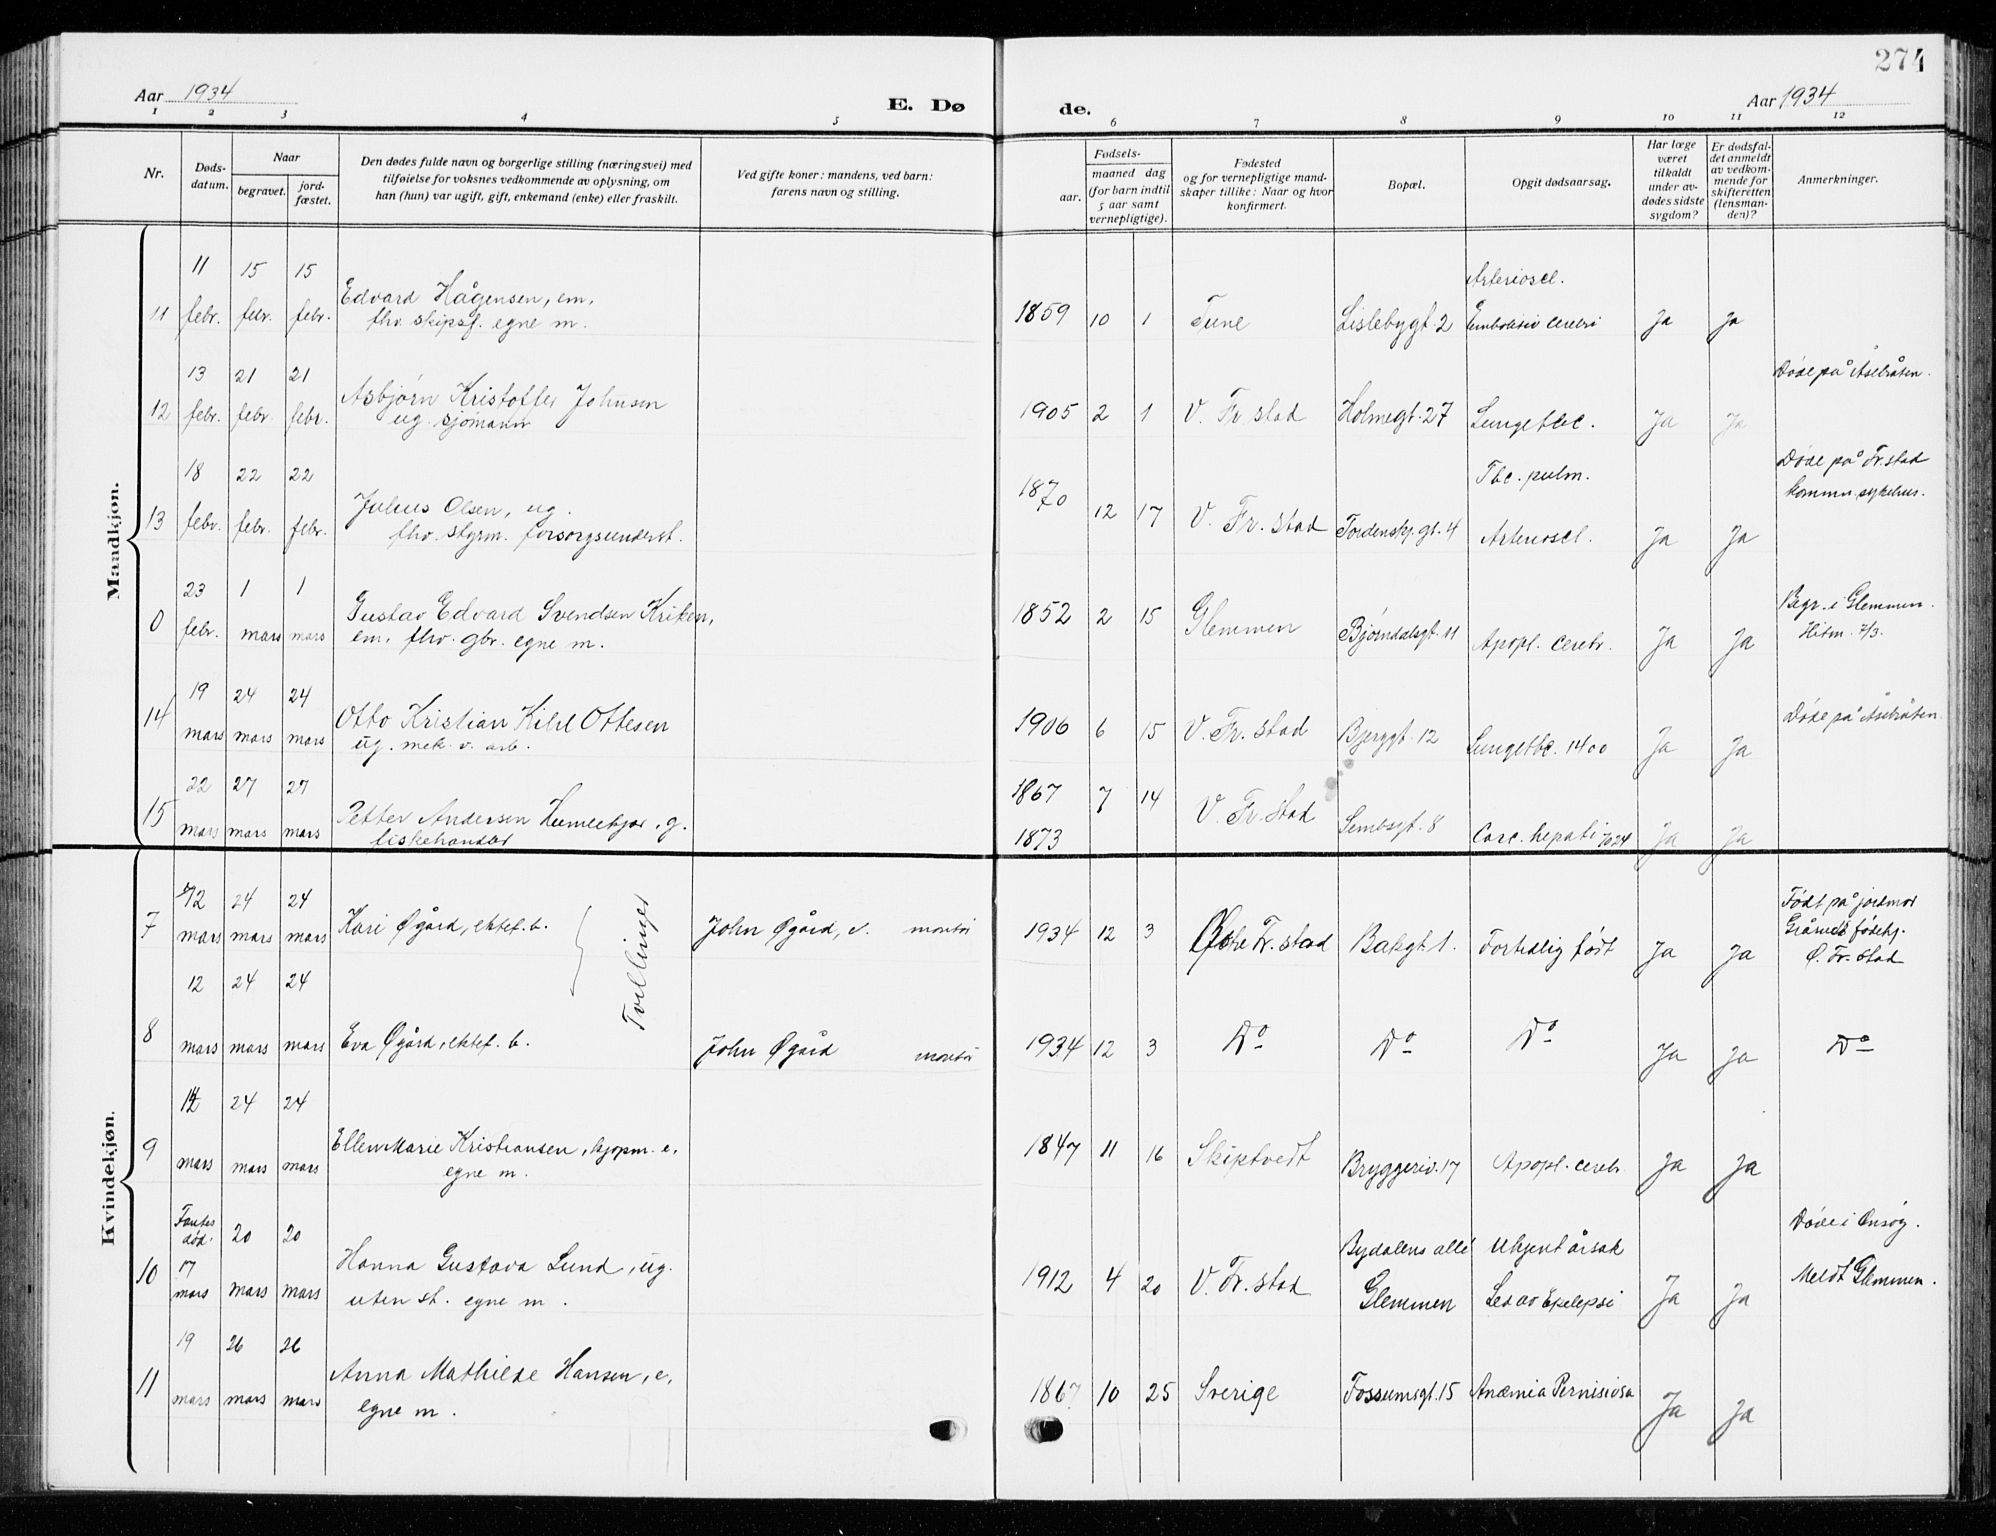 274
Aar 1934
E. Dø
de.
Aar 1934
1 2 3 4 5 6 7 8 9 10 11 12
Nr.
Døds-
datum.
Naar
begravet.
jord-
fæstet.
Den dødes fulde navn og borgerlige stilling (næringsvei) med
tilføielse for voksnes vedkommende av oplysning, om
han (hun) var ugift, gift, enkemand (enke) eller fraskilt.
Ved gifte koner: mandens, ved barn:
farens navn og stilling.
Fødsels-
aar.
maaned dag
(for barn indtil
5 aar samt
vernepligtige).
Fødested
og for vernepligtige mand-
skaper tillike: Naar og hvor
konfirmert.
Bopæl.
Opgit dødsaarsag.
Har læge
været
tilkaldt
under av-
dødes sidste
sygdom?
Er dødsfal-
det anmeldt
av vedkom-
mende for
skifteretten
(lensman-
den)?
Anmerkninger.
Maadkjøn.
11 15 15 Arterioscl.
11 febr. febr. febr. Edvard Hågensen, em, 1859 10 1 Tune Lislebygt. 2 Embolisio cerebri Ja Ja
fhv. skipsf. egne m.
13 21 21 Døde på Åsebråten.
12 febr. febr. febr. Asbjørn Kristoffer Johnsen 1905 2 1 V. Fr. stad Holmegt. 27 Lungetbc. Ja Ja
ug. sjømann
18 22 22 1870 Tbc. pulm. Døde på Fr.stad
kommu. sykehus.
13 febr. febr. febr. Julius Olsen, ug. 12 17 V. Fr. stad Tordenskj. gt. 4 Arterioscl. Ja Ja
fhv. styrm. forsorgsunderst.
23 1 1 Begr. i Glemmen.
0 febr. mars mars Gustav Edvard Svendsen Kriken, 1852 2 15 Glemmen Bjørndalsgt. 11 Apopl. cerebr. Ja Ja Hitm. 2/3.
em, fhv. gbr. egne m.
19 24 24
14 mars mars mars Otto Kristian Kihl Ottesen 1906 6 15 V. Fr. stad Bjerggt. 12 Lungetbc. 1400 Ja Ja Døde på Åsebråten
ug. mek. v. arb.
22 27 27 1867
15 mars mars mars Petter Andersen Humlekjær, g. 7 14 V. Fr. stad Sembsgt. 8 Carc. hepati 7024 Ja Ja
fiskehandler 1873
Kvindekjøn.
12 24 24 Født på jordmor
7 mars mars mars Kari Øgård, ektef. b. John Øgård, v. montør 1934 12 3 Østre Fr. stad Bakgt 1. Fortidlig født Ja Ja fødehj.
Ø. Fr. stad
Tvillinger
12 24 24
8 mars mars mars Eva Øgård, ektef. b. John Øgård montør 1934 12 3 Do Do Do Ja Ja Do
24 24
9 mars mars mars Ellen Marie Kristiansen, kjøpm. e, 1847 11 16 Skiptvedt Bryggeriv. 17 Apopl. cerebr. Ja Ja
egne m.
Fantes
død. 20 20 Bydalens allé Ukjent årsak Døde i Onsøy.
10 17
mars mars mars Hanna Gustava Lund, ug. 1912 4 20 V. Fr. stad Glemmen Led av Epelepsi Ja Ja Meldt Glemmen.
uten st. egne m.
19 26 26
11 mars mars mars Anna Mathilde Hansen, e, 1867 10 25 Sverige Fossumsgt. 15 Anæmia Pernisiosa Ja Ja
egne m.